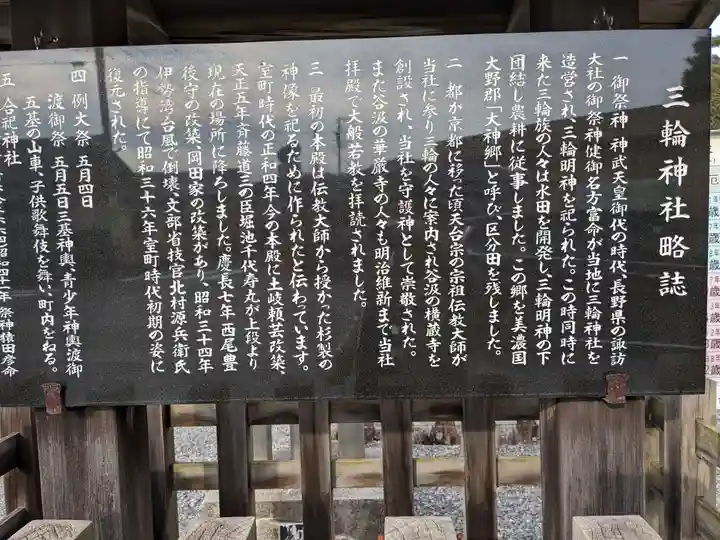 三輪神社略誌
一 御祭神 神武天皇御代の時代、長野県の諏訪
大社の御祭神健御名方富命が当地に三輪神社を
造営され、三輪明神を祀られた。この時同時に
来た三輪族の人々は水田を開発し、三輪明神の下
団結し農耕に従事しました。この郷を美濃国
大野郡「大神郷」と呼び、区分田を残しました。
二 都が京都に移った頃天台宗の宗祖伝教大師が
当社に参り三輪の人々に案内され谷汲の横蔵寺を
創設され、当社を守護神として崇敬された。
また谷汲の華厳寺の人々も明治維新まで当社
拝殿で大般若教を拝読されました。
三 最初の本殿は伝教大師から授かった杉製の
神像を祀るために作られたと伝わっています。
室町時代の正和四年今の本殿に土岐頼芸改築、
天正五年斉藤道三の臣堀池千代寿丸が上段より
現在の場所に降ろしました。慶長七年西尾豊
後守の改築、岡田家の改築があり、昭和三十四年
伊勢湾台風で倒壊、文部省技官北村源兵衛氏
の指導にて昭和三十六年室町時代初期の姿に
復元された。
四 例大祭 五月四日
渡御祭 五月五日三基神輿、青少年神輿渡御
五基の山車、子供歌舞伎を舞い、町内をねる。
五 合祀神社
昭和四十一年 祭神猿田彦命
歳
歳
歳
歳
歳
歳